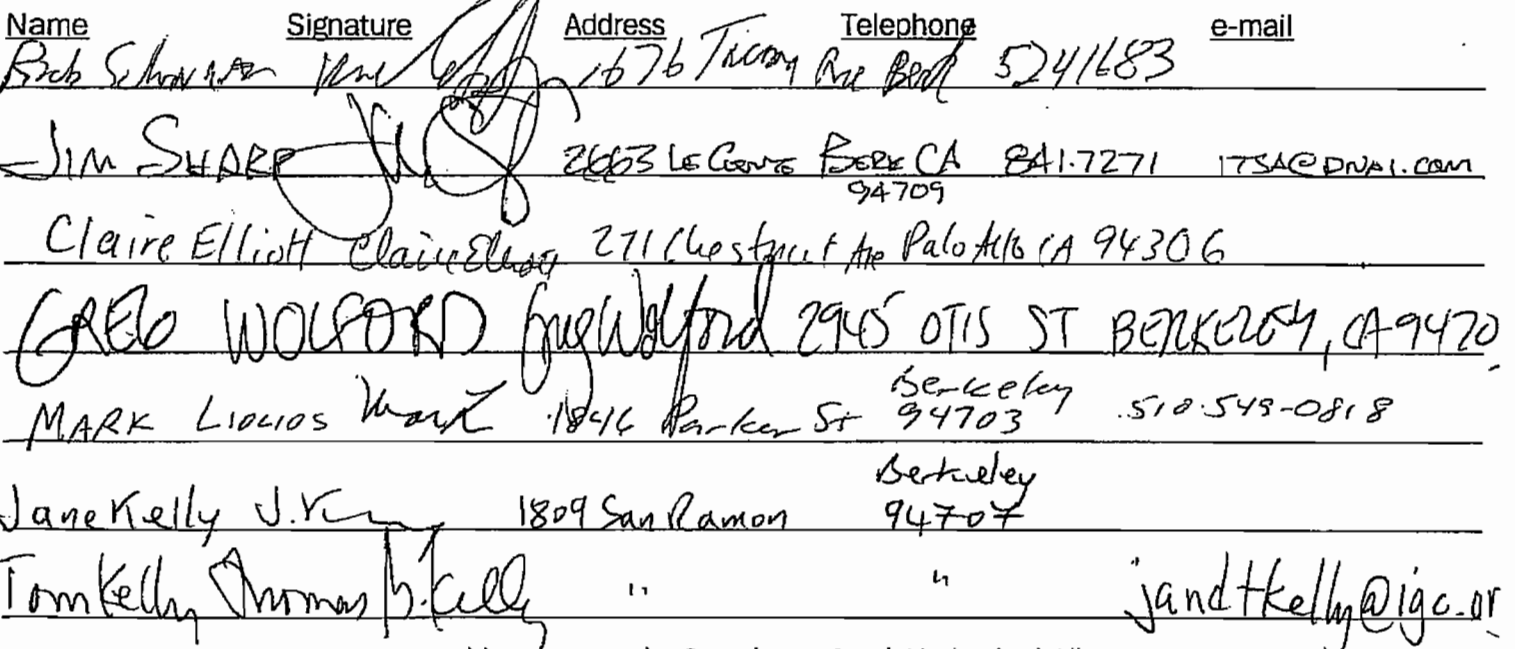 Name Signature Address Telephone e-mail
Bob 1676 Berk 5241683
JIM SHARP 2663 LE CONTE BERK CA 841.7271 ITSA@DNAI.COM
94709
Claire Elliott Claire Elliott 271 Chestnut Ave Palo Alto CA 94306
GREG WOLFORD Greg Wolford 2945 OTIS ST BERKELEY, CA 9470
Berkeley
MARK LIOLIOS Mark 1846 Parker St 94703 510.549-0818
Berkeley
Jane Kelly J. 1809 San Ramon 94707
Tom Kelly Thomas B. Kelly " " jandtkelly@igc.or